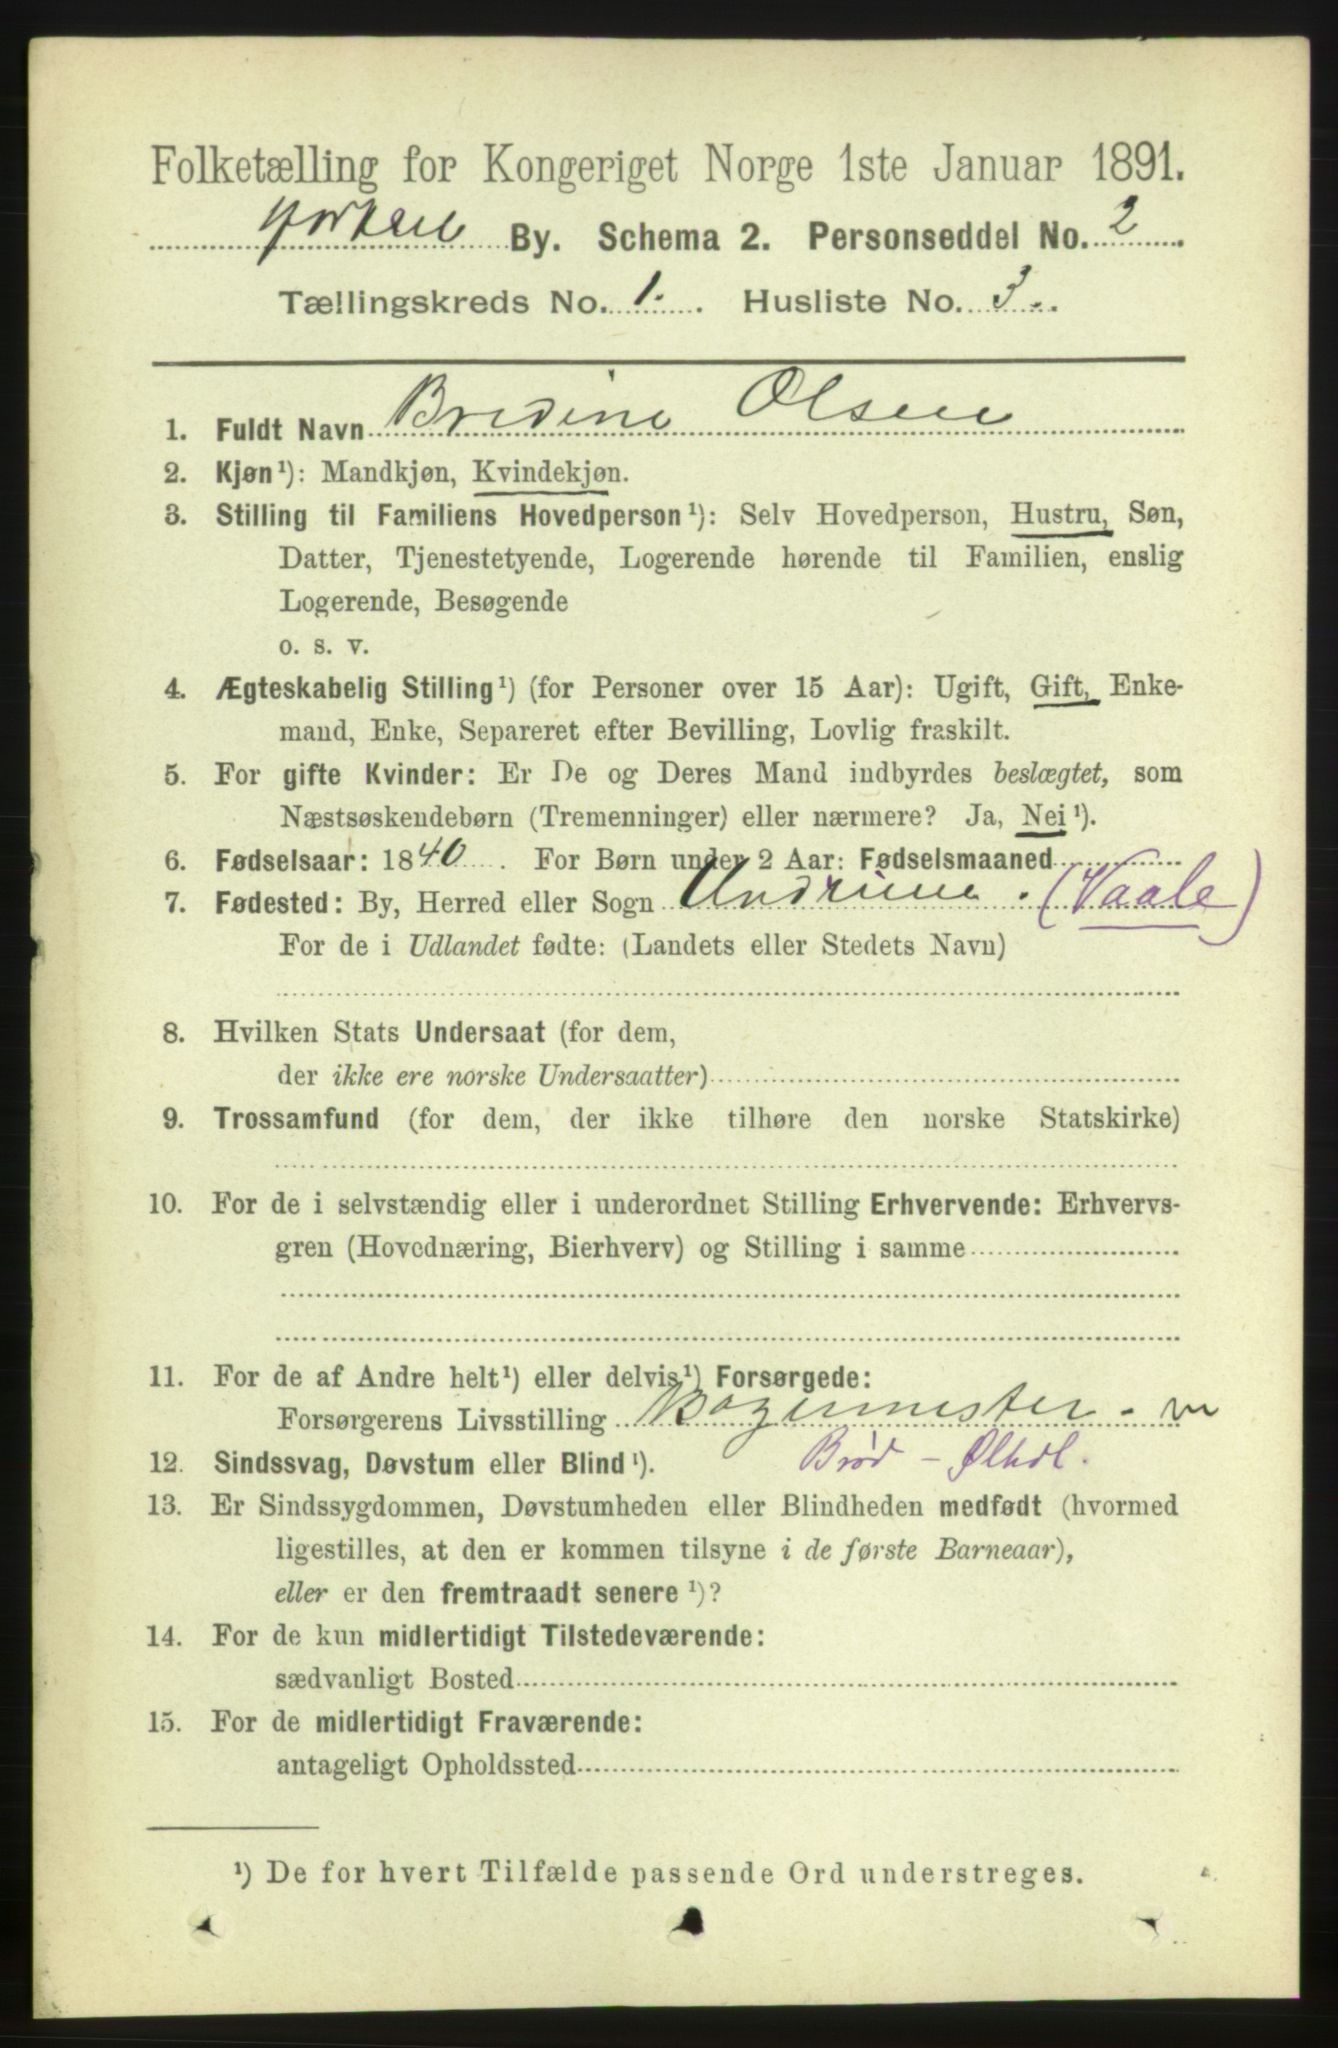 Folketælling for Kongeriget Norge 1ste Januar 1891.
Horten By. Schema 2. Personseddel No. 2
Tællingskreds No. 1. Husliste No. 3.
1. Fuldt Navn Bredine Olsen
2. Kjøn¹): Mandkjøn, Kvindekjøn.
3. Stilling til Familiens Hovedperson¹): Selv Hovedperson, Hustru, Søn,
Datter, Tjenestetyende, Logerende hørende til Familien, enslig
Logerende, Besøgende
o. s. v.
4. Ægteskabelig Stilling¹) (for Personer over 15 Aar): Ugift, Gift, Enke-
mand, Enke, Separeret efter Bevilling, Lovlig fraskilt.
5. For gifte Kvinder: Er De og Deres Mand indbyrdes beslægtet, som
Næstsøskendebørn (Tremenninger) eller nærmere? Ja, Nei¹).
6. Fødselsaar: 1840. For Børn under 2 Aar: Fødselsmaaned
7. Fødested: By, Herred eller Sogn Undrum. (Vaale)
For de i Udlandet fødte: (Landets eller Stedets Navn)
8. Hvilken Stats Undersaat (for dem,
der ikke ere norske Undersaatter)
9. Trossamfund (for dem, der ikke tilhøre den norske Statskirke)
10. For de i selvstændig eller i underordnet Stilling Erhvervende: Erhvervs-
gren (Hovednæring, Bierhverv) og Stilling i samme
11. For de af Andre helt¹) eller delvis¹) Forsørgede:
Forsørgerens Livsstilling Bagermester -
Brød - Ølhdl.
12. Sindssvag, Døvstum eller Blind¹).
13. Er Sindssygdommen, Døvstumheden eller Blindheden medfødt (hvormed
ligestilles, at den er kommen tilsyne i de første Barneaar),
eller er den fremtraadt senere¹)?
14. For de kun midlertidigt Tilstedeværende:
sædvanligt Bosted
15. For de midlertidigt Fraværende:
antageligt Opholdssted
¹) De for hvert Tilfælde passende Ord understreges.